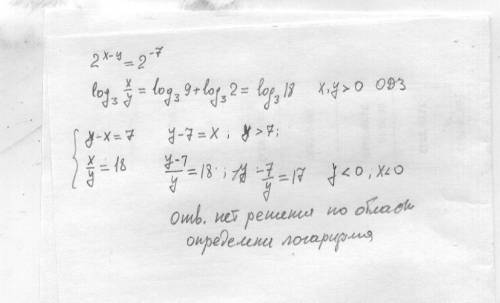 2^{x-y} = 2^{-7}
log_3 x/y = log_3 9 + log_3 2 = log_3 18    x, y > 0    ОДЗ
{ y - x = 7    y - 7 = x ;    y > 7;
x/y = 18    (y-7)/y = 18 ;    -7/y = 17    y < 0, x < 0
Отв. нет решения по област
определени логарифма